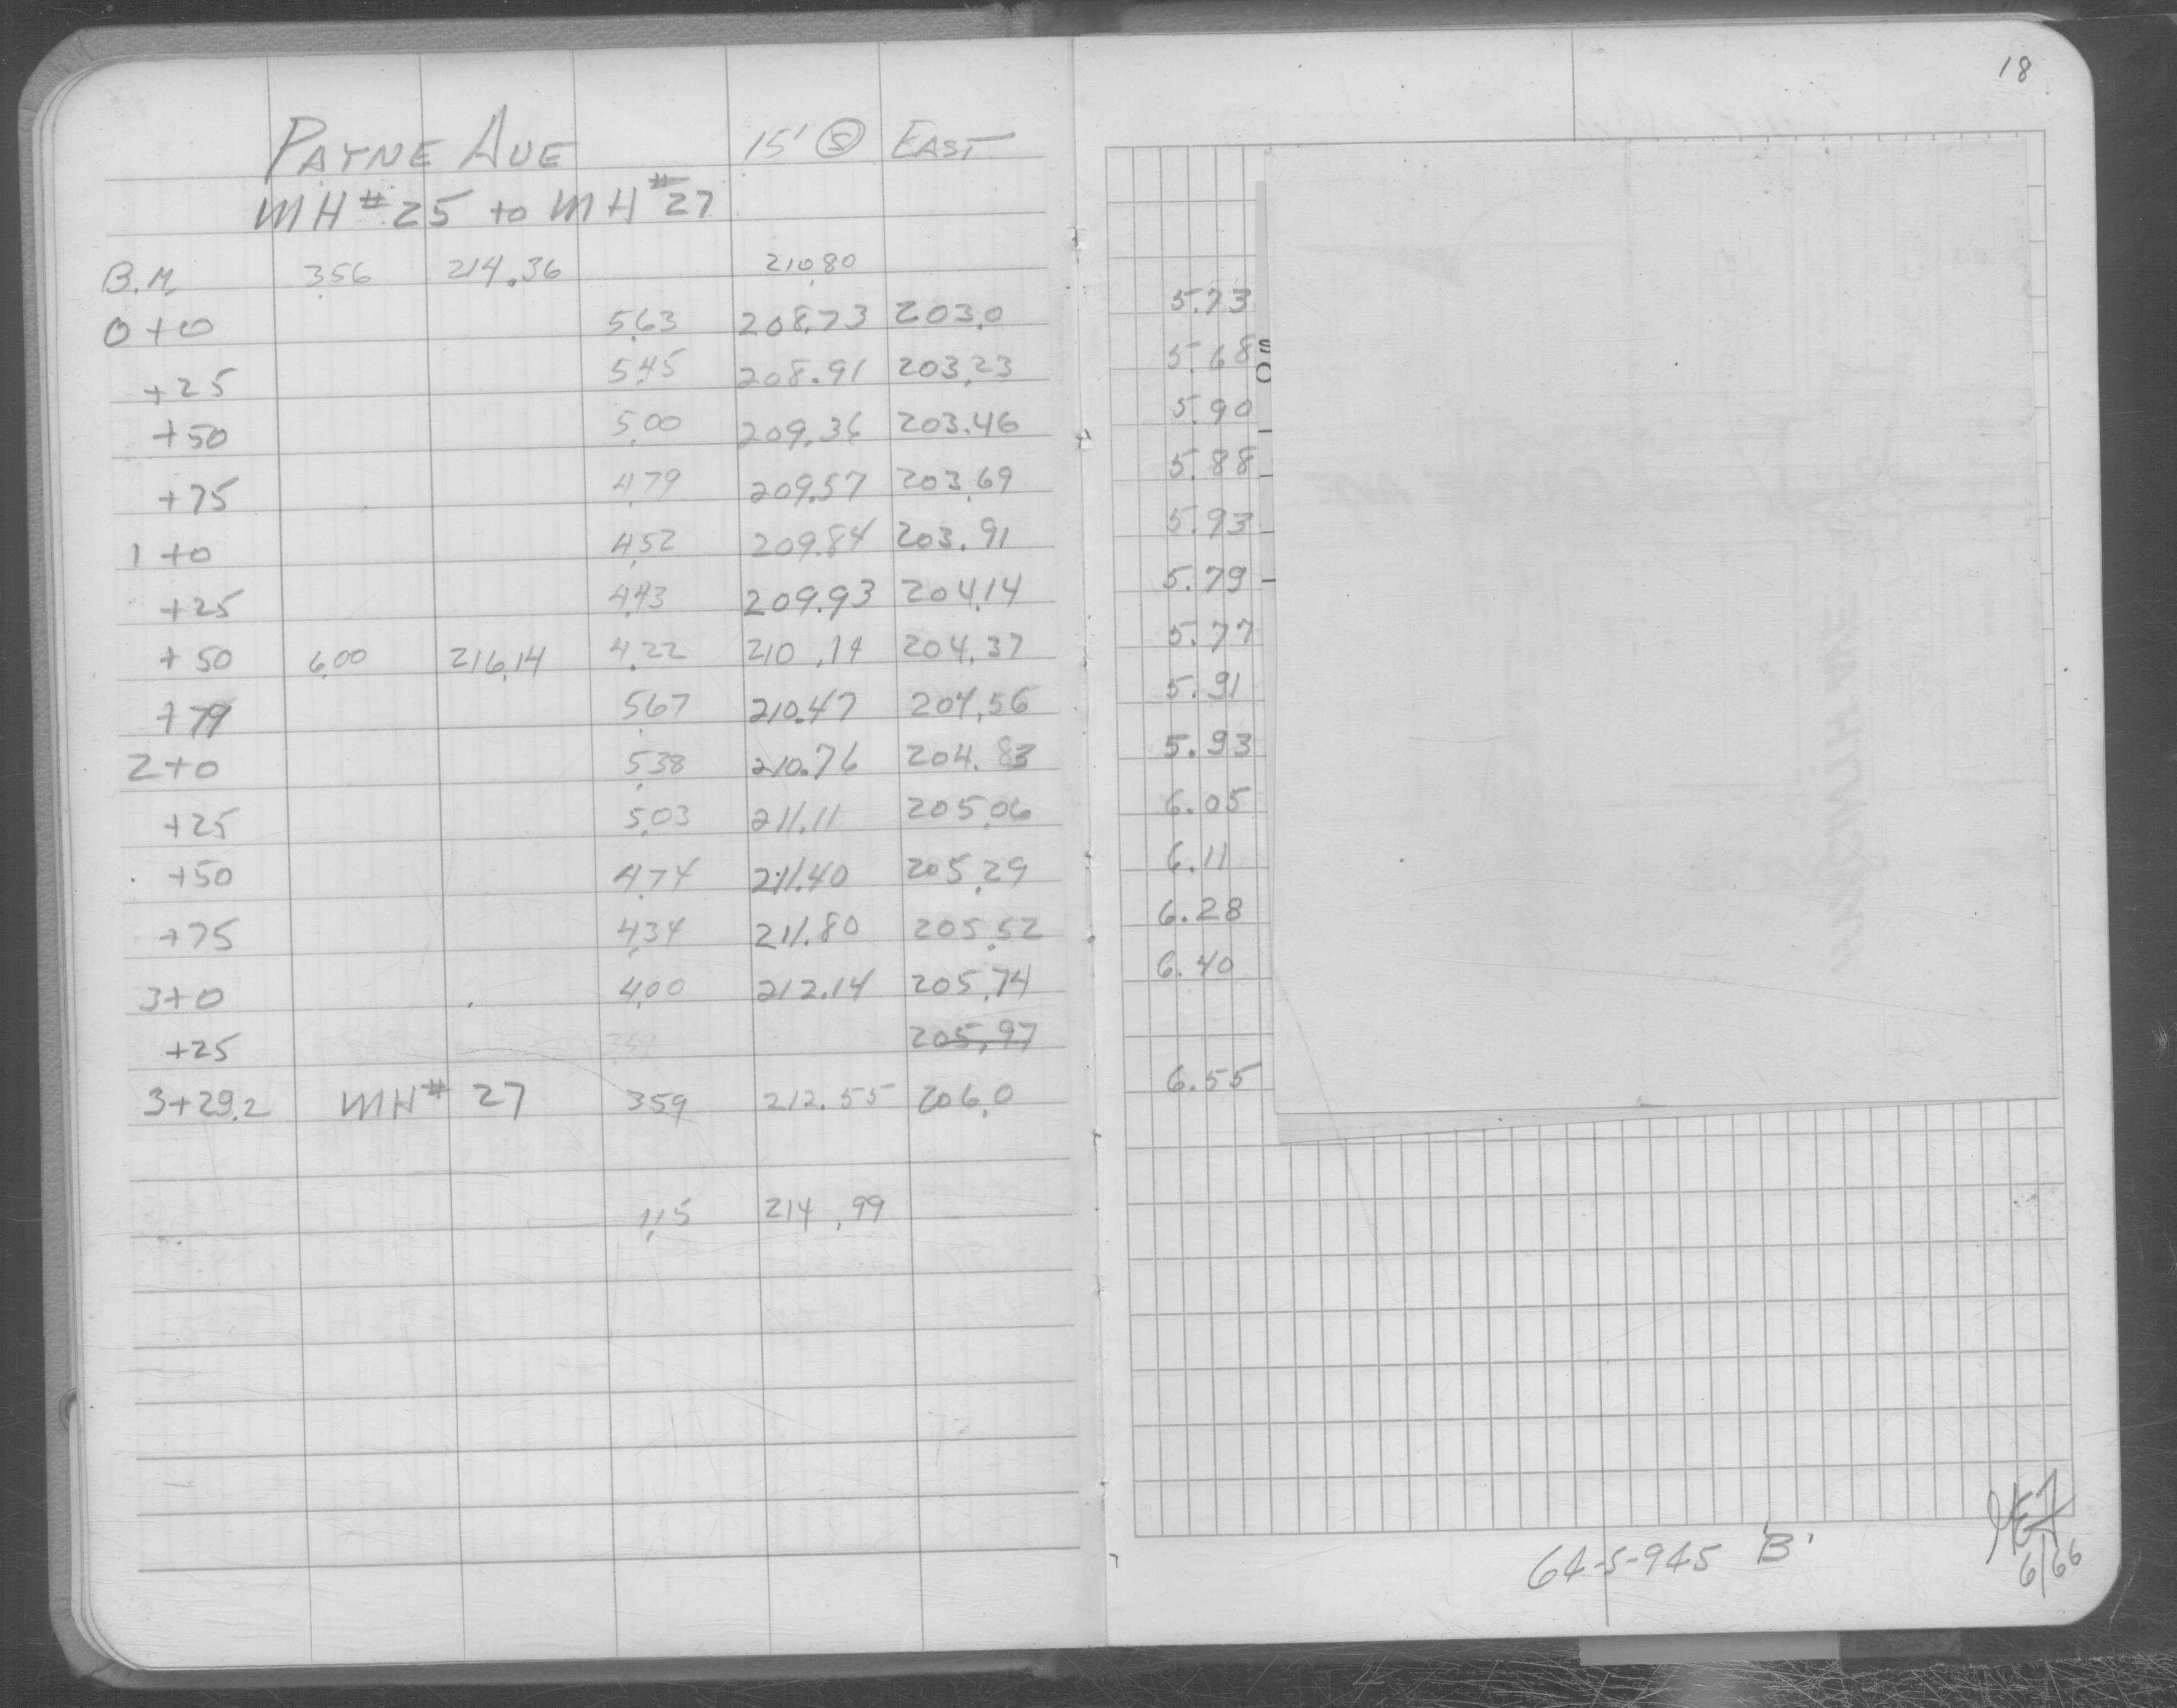 18
PAYNE AVE 15' Ⓢ EAST
MH # 25 to MH # 27
B.M. 3.56 214.36 210.80
0+0 5.63 208.73 203.0 5.73
+25 5.45 208.91 203.23 5.68
+50 5.00 209.36 203.46 5.90
+75 4.79 209.57 203.69 5.88
1+0 4.52 209.84 203.91 5.93
+25 4.43 209.93 204.14 5.79
+50 6.00 216.14 4.22 210.14 204.37 5.77
+79 5.67 210.47 204.56 5.91
2+0 5.38 210.76 204.83 5.93
+25 5.03 211.11 205.06 6.05
+50 4.74 211.40 205.29 6.11
+75 4.34 211.80 205.52 6.28
3+0 4.00 212.14 205.74 6.40
+25 205.97
3+29.2 MH # 27 3.59 212.55 206.0 6.55
1.15 214.99
64-5-945 'B'
6/66